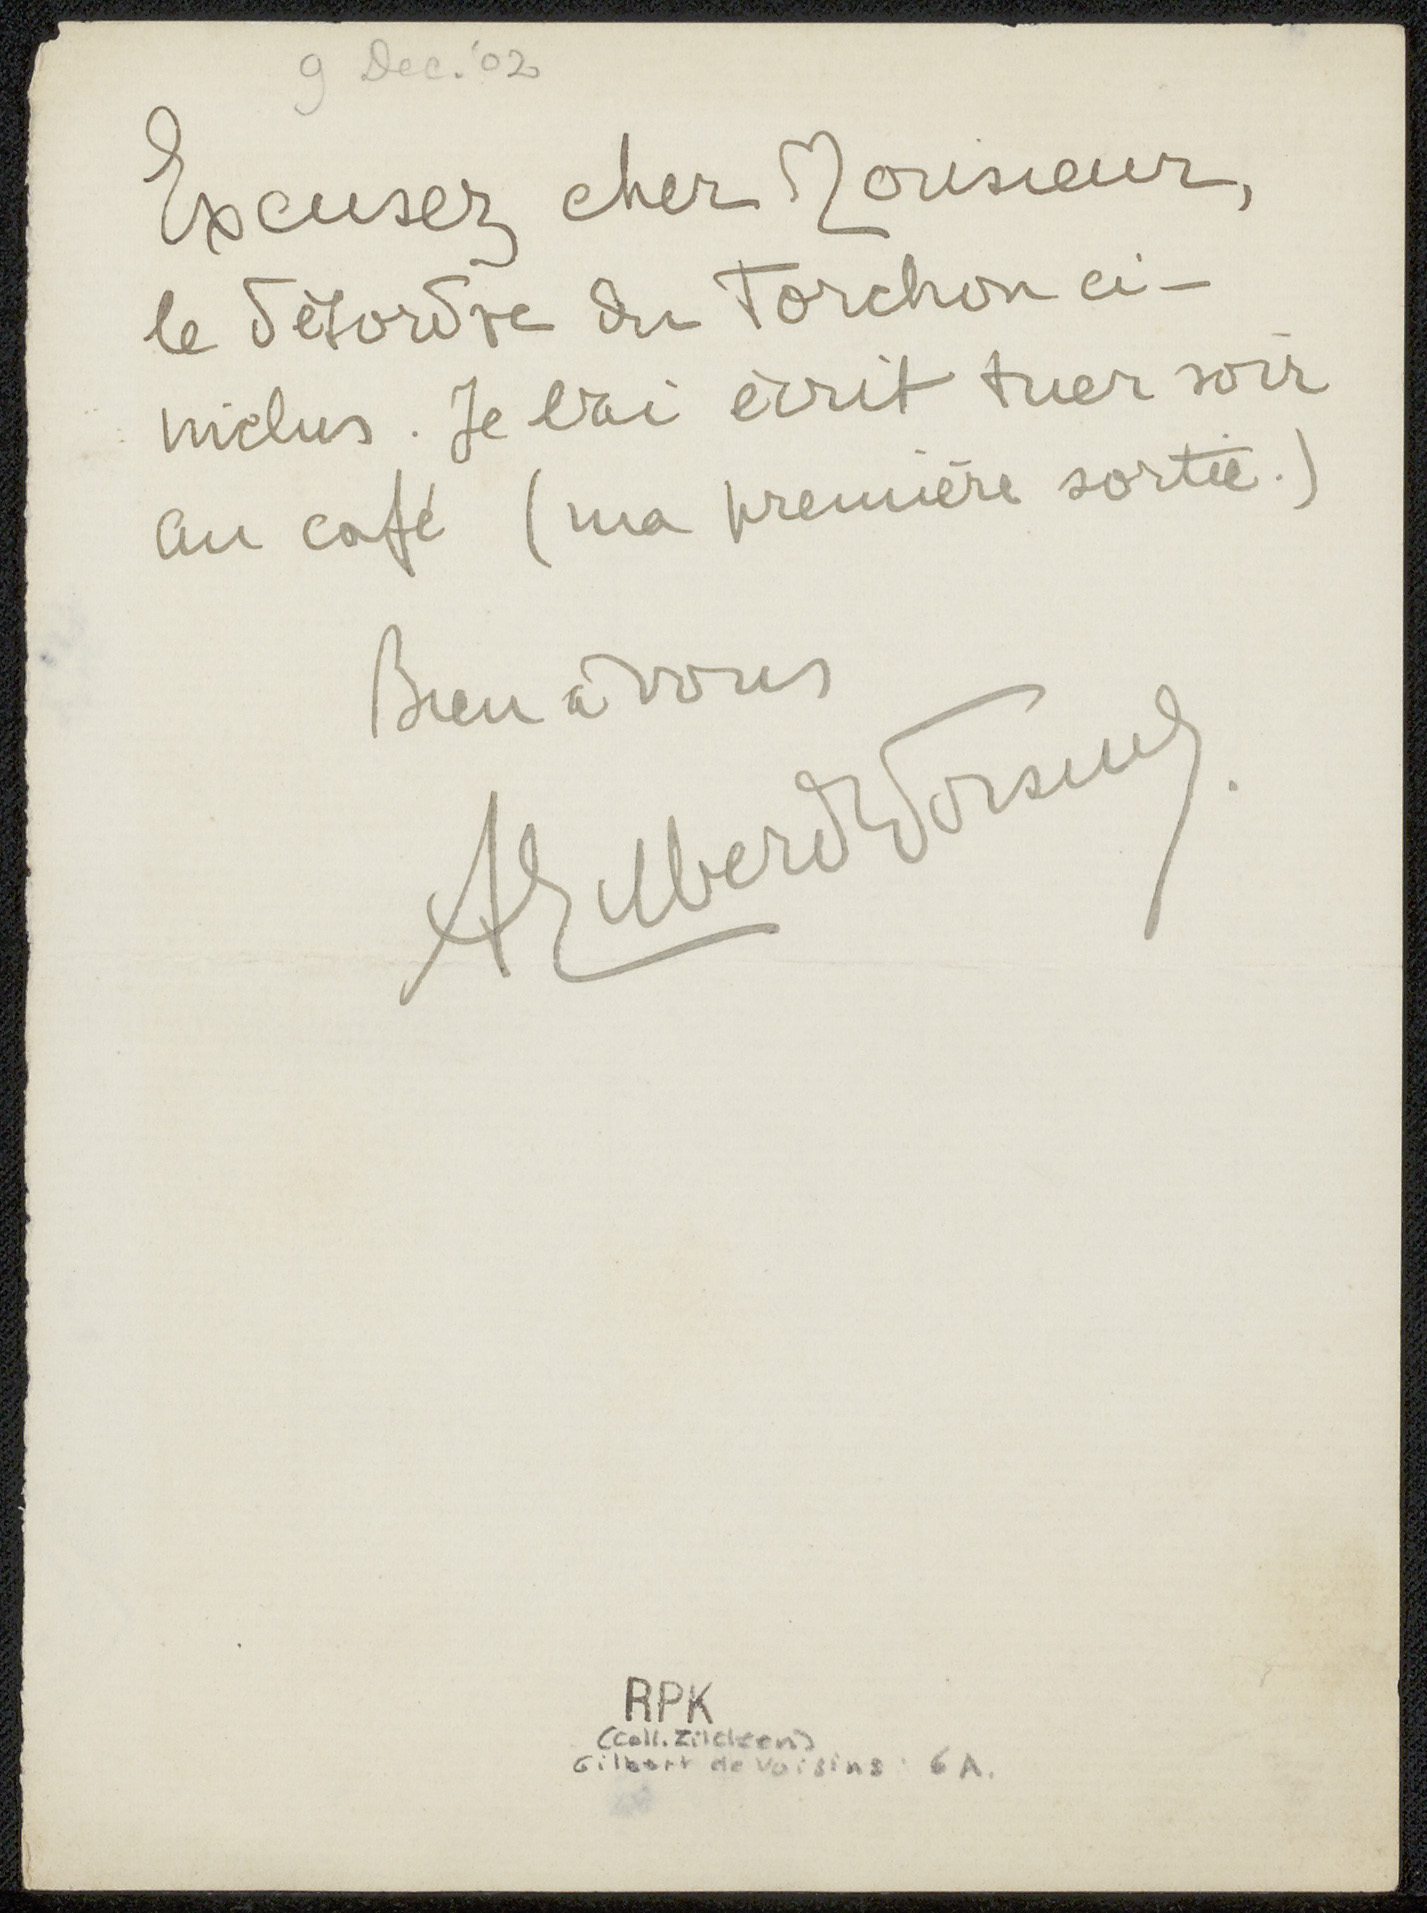 9 Dec. '02
Excusez cher Monsieur,
le désordre du torchon ci-
inclus. Je l'ai écrit hier soir
au café (ma première sortie.)
Bien à vous
A Gilbert de Voisins.
RPK
(Coll. Zilcken)
Gilbert de Voisins : 6 A.